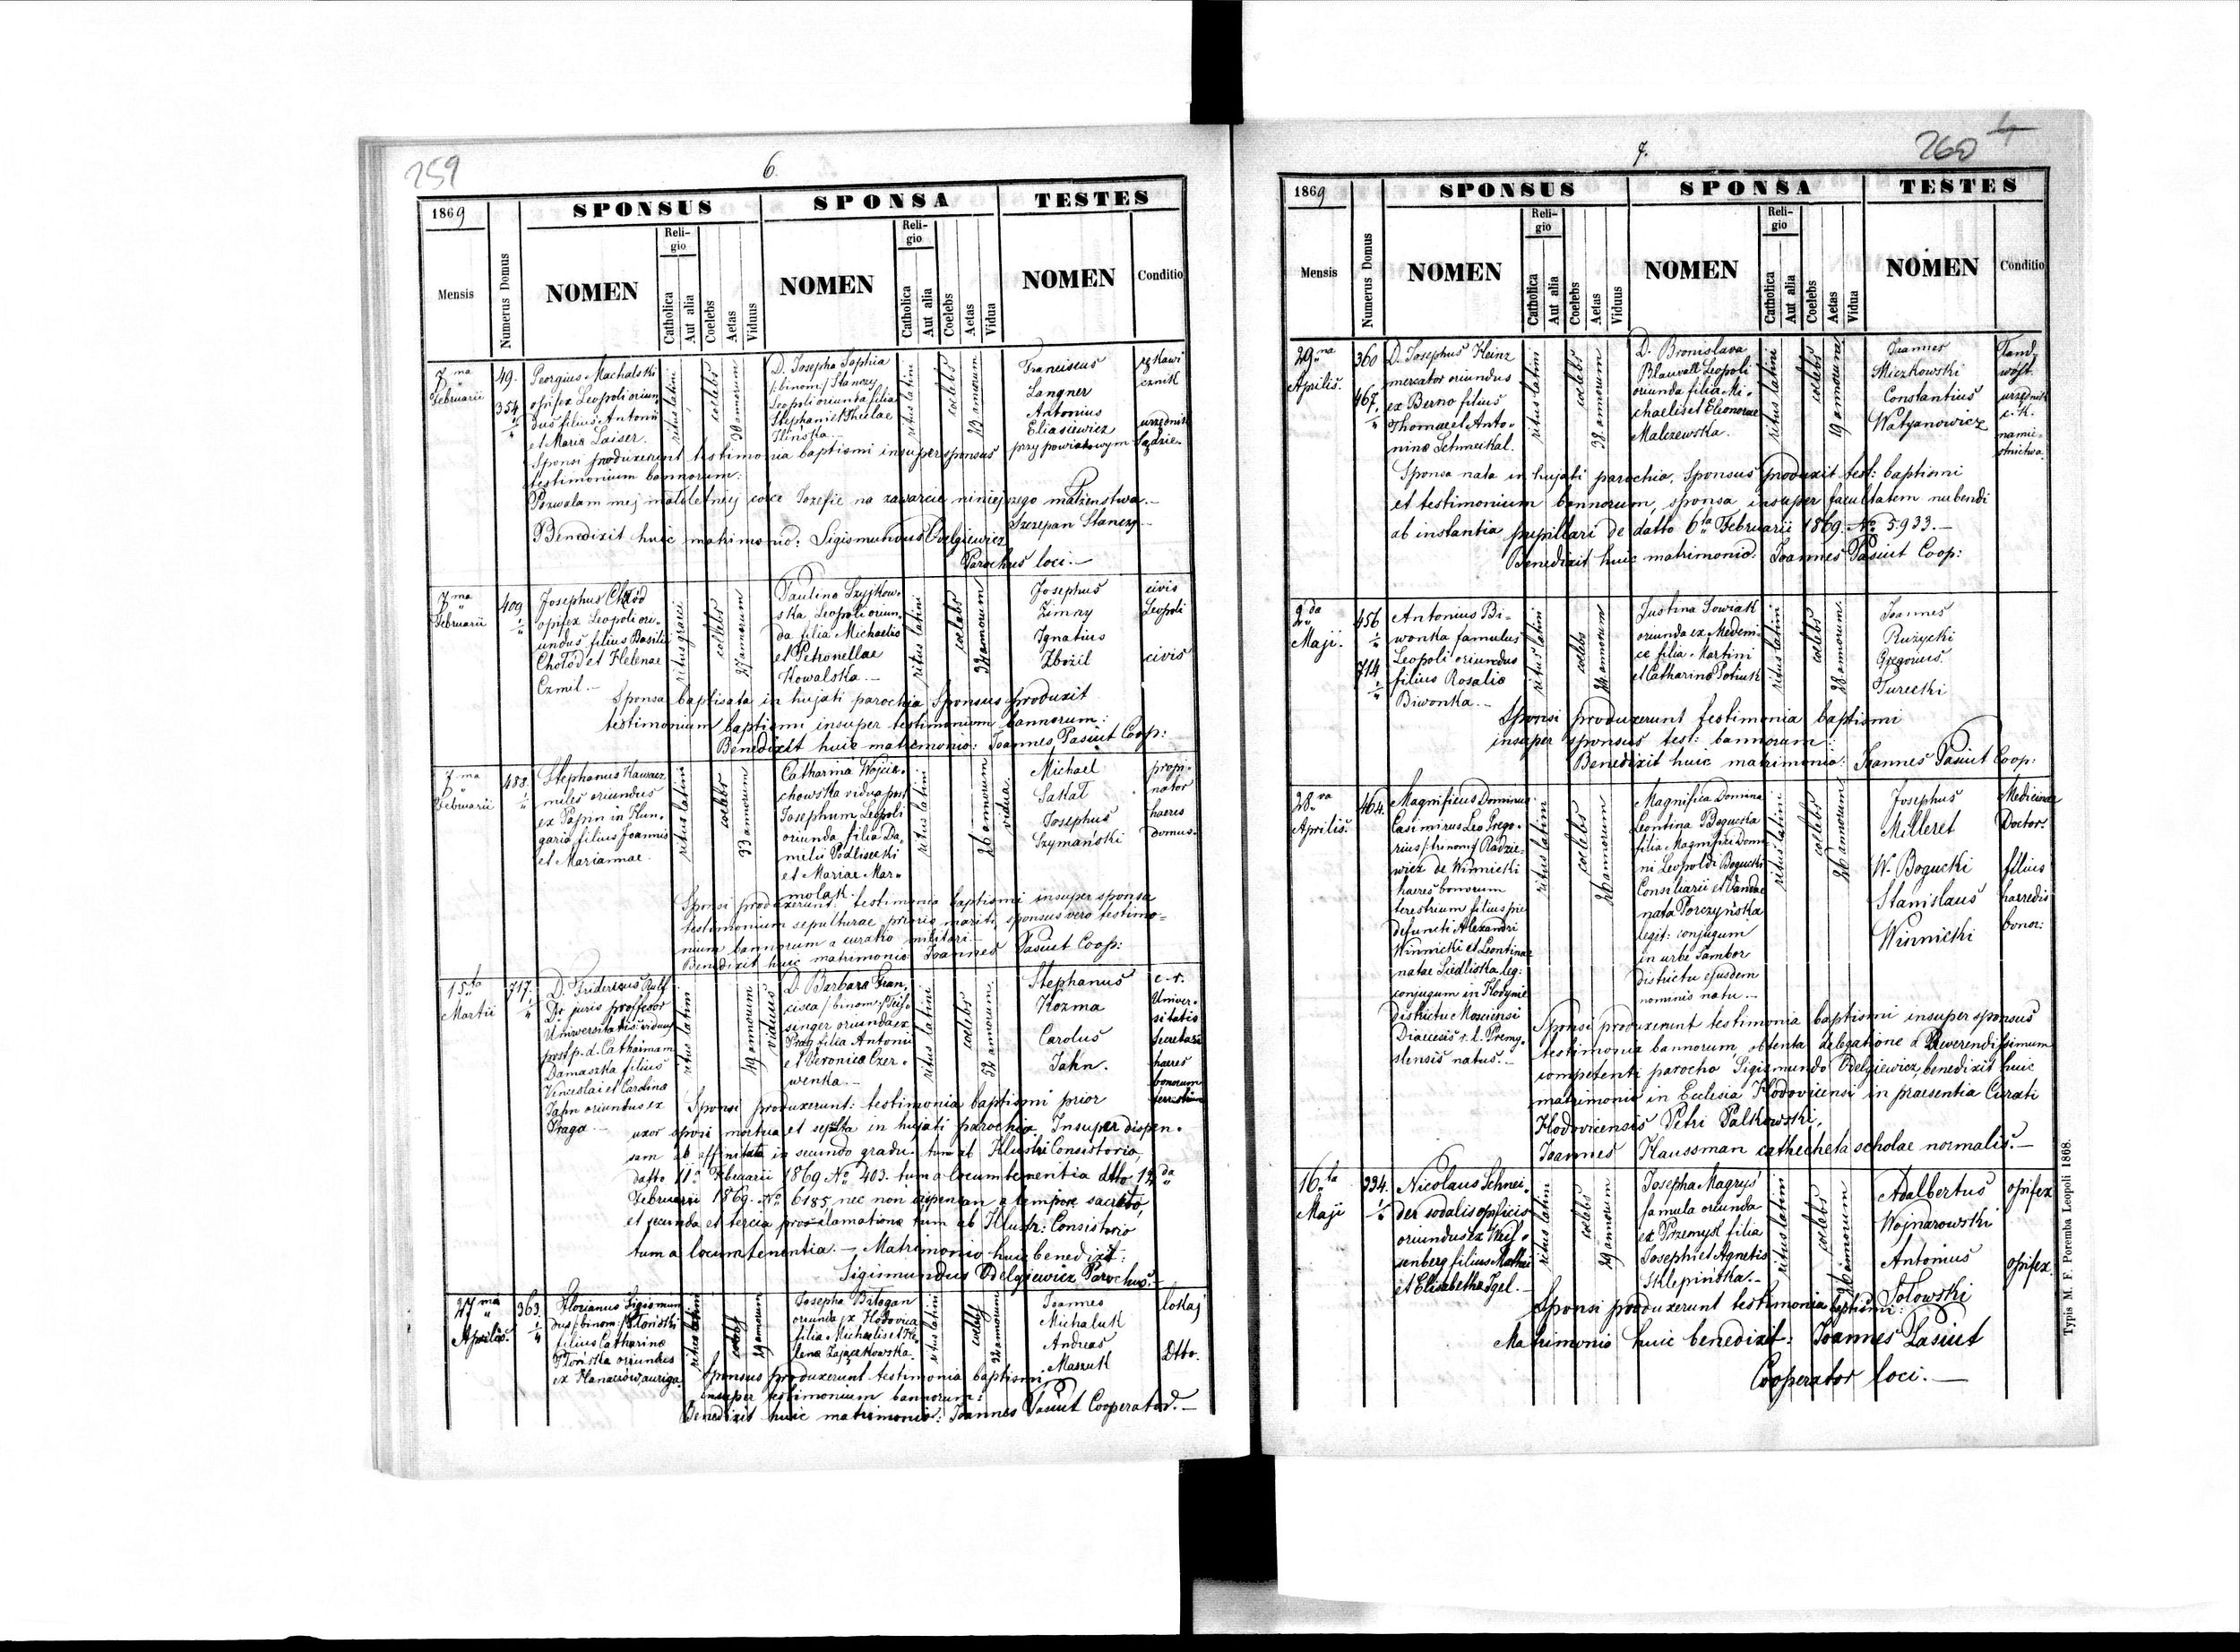 259
6.
1869
SPONSUS
SPONSA
TESTES
Mensis
Numerus Domus
NOMEN
Religio
Catholica
Aut alia
Coelebs
Aetas
Viduus
NOMEN
Religio
Catholica
Aut alia
Coelebs
Aetas
Vidua
NOMEN
Conditio
7ma
Februarii
49.
354
Georgius Machalski
opifex Leopoli oriun-
dus filius Antonii
et Maria Laiser.
ritus latini
coelebs
30 annorum
D. Josepha Sophia
/:binom:/ Stanczy
Leopoli oriunda filia
Stephani et Theclae
Ilińska
ritus latini
coelebs
23 annorum
Franciscus
Langner
Antonius
Eliasiewicz
przy powiatowym
rękawi
cznik
urzędnik
Sądzie
Sponsi produxerunt testimonia baptismi insuper sponsus
testimonium bannorum:
Pozwalam mej małoletniej córce Józefie na zawarcie niniejszego małżeństwa.
Szczepan Stanczy
Benedixit huic matrimonio: Sigismundus Odelgiewicz
Parochus loci.
7ma
Februarii
409
Josephus Chłód
opifex Leopoli ori-
undus filius Basilii
Chołód et Helenae
Czmil.
ritus graeci
coelebs
27 annorum
Paulina Szyjkow-
ska Leopoli oriun-
da filia Michaelis
et Petronellae
Kowalska.
ritus latini
coelebs
32 annorum
Josephus
Zimny
Ignatius
Zbozil
civis
Leopoli
civis
Sponsa baptisata in hujati parochia Sponsus produxit
testimonium baptismi insuper testimonium bannorum:
Benedixit huic matrimonio: Joannes Pasiut Coop:
7ma
Februarii
488
Stephanus
miles oriundus
ex Papin in Hun-
garia filius Joannis
et Mariannae.
ritus latini
coelebs
33 annorum
Catharina Wojcie-
chowska vidua post
Josephum Leopoli
oriunda filia Da-
melii Podlisecki
et Mariae Mar-
molak.
ritus latini
26 annorum
vidua
Michael
Sakal
Josephus
Szymański
propi-
nator
haeres
domus.
Sponsi produxerunt: testimonia baptismi insuper sponsa
testimonium sepulturae prioris mariti, sponsus vero testimo-
nium bannorum a curato militari.
Benedixit huic matrimonio Joannes Pasiut Coop:
15ta
Martii
717
D. Fridericus Rulf
Dr. juris professor
Universitatis viduus
post p. d. Catharinam
Damaszka filius
Venceslai et Carolina
Jahn oriundus ex
Praga
ritus latini
49 annorum
viduus
D. Barbara Fran-
cisca /:binom:/
singer oriunda ex
Prag filia Antonii
et Veronica Czer-
wenka.
ritus latini
coelebs
32 annorum
Stephanus
Kozma
Carolus
Jahn.
c. r.
Univer-
sitatis
Secretari
haeres
bonorum
Sponsi produxerunt: testimonia baptismi prior
uxor sponsi mortua et sepulta in hujati parochia. Insuper dispen-
sam ab affinitate in secundo gradu tum ab Illustri Consistorio,
datto 11a Februarii 1869 No 403. tum a locumtenentia dtto 12da
Februarii 1869. No 6185, nec non dispensam a tempore sacrato,
et secunda et tercia proclamatione tum ab Illustr: Consistorio
tum a locumtenentia. Matrimonio huic benedixit:
Sigismundus Odelgiewicz Parochus.
27ma
Aprilis.
363
Florianus Sigismun
dus /:binom:/ Płoński
filius Catharina
Płońska oriundus
ex Hanaczów auriga.
ritus latini
coelebs
29 annorum
Josepha
oriunda ex Hodovica
filia Michaelis et He-
lena Zajączkowska.
ritus latini
coelebs
22 annorum
Joannes
Michaluk
Andreas
Maszuk
lokaj
Dtto.
Sponsus produxerunt testimonia baptismi
insuper testimonium bannorum:
Benedixit huic matrimonio: Joannes Pasiut Cooperator.
7.
260
4
1869
SPONSUS
SPONSA
TESTES
Mensis
Numerus Domus
NOMEN
Religio
Catholica
Aut alia
Coelebs
Aetas
Viduus
NOMEN
Religio
Catholica
Aut alia
Coelebs
Aetas
Vidua
NOMEN
Conditio
29na
Aprilis.
360
467
D. Josephus Heinz
mercator oriundus
ex Berno filius
Thomae et Anto-
nina Schmeikal.
ritus latini
coelebs
38 annorum
D. Bronislava
Blauvall Leopoli
oriunda filia Mi-
chaelis et Eleonorae
Malczewska.
ritus latini
coelebs
19 annorum
Joannes
Miczkowski
Constantius
Watyanowicz
urzędnik
c. k.
namie-
stnictwa.
Sponsa nata in hujati parochia, Sponsus produxit test: baptismi
et testimonium bannorum, sponsa insuper facultatem nubendi
ab instantia pupillari de datto 6ta Februarii 1869. No 5933.
Benedixit huic matrimonio: Joannes Pasiut Coop:
2da
Maji.
456
714
Antonius Bi-
wonka famulus
Leopoli oriundus
filius Rosalia
Biwonka.
ritus latini
coelebs
24 annorum
Justina Sowiak
oriunda ex Medeni-
ce filia Martini
et Catharina Potiuk
ritus latini
coelebs
28 annorum
Joannes
Ruzycki
Gregorius
Turecki
Sponsi produxerunt testimonia baptismi
insuper sponsus test: bannorum:
Benedixit huic matrimonio: Joannes Pasiut Coop:
28va
Aprilis.
464.
Magnificus Dominus
Casimirus Leo Grego-
rius /:trinom:/ Radzie-
wicz de Winnicki
haeres bonorum
terestrium filius pie
defuncti Alexandri
Winnicki et Leontinae
natae Siedliska leg:
conjugum in Hodynie
districtu Mosciensi
Diaecesis r. l. Premy-
sliensis natus.
ritus latini
coelebs
26 annorum
Magnifica Domina
Leontina Bogucka
filia Magnifici Domi
ni Leopoldi Bogucki
Consiliarii et Vandae
nata Porczyńska
legit: conjugum
in urbe Sambor
districtu ejusdem
nominis natu.
ritus latini
coelebs
26 annorum
Josephus
Milleret
W. Bogucki
Stanislaus
Winnicki
Medicinae
Doctor.
filius
haeredis
bonor:
Sponsi produxerunt testimonia baptismi insuper sponsus
testimonia bannorum, obtenta delegatione a Reverendissimum
competenti parocho Sigismundo Odelgiewicz, benedixit huic
matrimonio in Ecclesia Hodovicensi in praesentia Curati
Hodovicensis Petri Palkowski,
Joannes Haussman cathecheta scholae normalis.
16ta
Maji
334.
Nicolaus Schnei-
der sodalis opificis
oriundus ex Wei-
senberg filius Mathei
et Elisabetha Igel.
ritus latini
coelebs
29 annorum
Josepha Magryś
famula oriunda
ex Przemysl filia
Josephi et Agnetis
Sklepińska.
ritus latini
coelebs
26 annorum
Adalbertus
Wojnarowski
Antonius
Sołowski
opifex
opifex.
Sponsi produxerunt testimonia baptismi:
Matrimonio huic benedixit: Joannes Pasiut
Cooperator loci.
Typis M. F. Poremba Leopoli 1868.